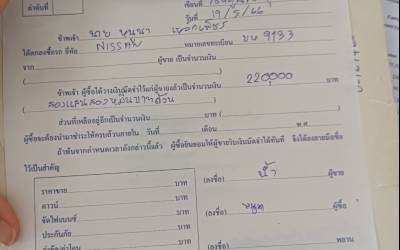 ลำดับที่
เขียนที่
วันที่ 19/5/66
ข้าพเจ้า นาย หนูนา เพชร
ได้ตกลงซื้อรถ ยี่ห้อ NISSAN หมายเลขทะเบียน บพ 9133
จาก ผู้ขาย เป็นจำนวนเงิน
ข้าพเจ้า ผู้ซื้อได้วางเงินมัดจำไว้แก่ผู้ขายแล้วเป็นจำนวนเงิน 220,000 บาท
( สองแสนสองหมื่นบาทถ้วน )
ส่วนที่เหลืออยู่อีกเป็นจำนวนเงิน บาท (
ผู้ซื้อจะต้องนำมาชำระให้ครบถ้วนภายใน วันที่ เดือน พ.ศ.
ถ้าพ้นจากกำหนดเวลาดังกล่าวนี้แล้ว ผู้ซื้อยินยอมให้ผู้ขายริบเงินมัดจำได้ทันที จึงได้ลงลายมือชื่อ
ไว้เป็นสำคัญ
ราคาขาย บาท
(ลงชื่อ) ผู้ขาย
ดาวน์ บาท
จัดไฟแนนซ์ บาท
(ลงชื่อ) ผู้ซื้อ
ประกันภัย บาท
บาท
(ลงชื่อ) พยาน